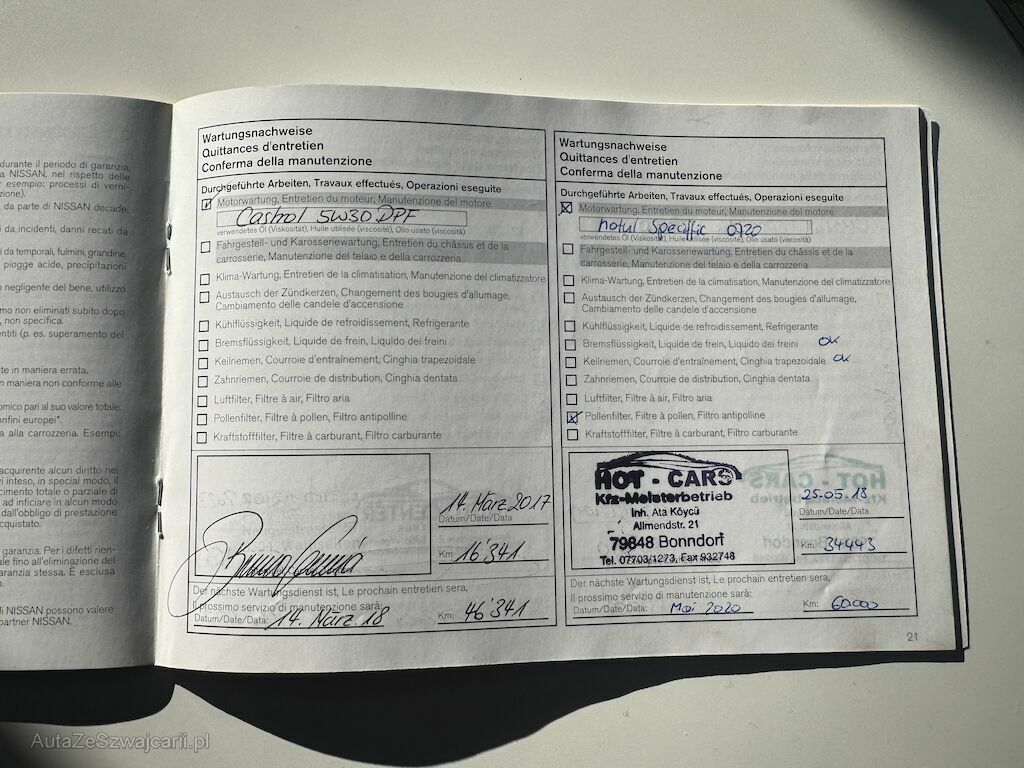 durante il periodo di garanzia,
a NISSAN, nel rispetto delle
esempio: processi di verni-
zione).
da parte di NISSAN decade,
da incidenti, danni recati da
da temporali, fulmini, grandine.
piogge acide, precipitazioni
negligente del bene, utilizzo
mo non eliminati subito dopo
, non specifica.
entiti (p. es. superamento del
te in maniera errata.
in maniera non conforme alle
omico pari al suo valore totale.
onfini europei*.
a alla carrozzeria. Esempi:
acquirente alcun diritto nei
vi inteso, in special modo, il
cimento totale o parziale di
ad inficiare in alcun modo
dall'obbligo di prestazione
acquistato.
garanzia. Per i difetti rien-
ale fino all'eliminazione del
aranzia stessa. È esclusa
li NISSAN possono valere
partner NISSAN.
Wartungsnachweise
Quittances d'entretien
Conferma della manutenzione
Durchgeführte Arbeiten, Travaux effectués, Operazioni eseguite
Motorwartung, Entretien du moteur, Manutenzione del motore
Castrol 5W30 DPF
verwendetes Öl (Viskosität), Huile utilisée (viscosité), Olio usato (viscosità)
Fahrgestell- und Karosseriewartung, Entretien du châssis et de la
carrosserie, Manutenzione del telaio e della carrozzeria
Klima-Wartung, Entretien de la climatisation, Manutenzione del climatizzatore
Austausch der Zündkerzen, Changement des bougies d'allumage,
Cambiamento delle candele d'accensione
Kühlflüssigkeit, Liquide de refroidissement, Refrigerante
Bremsflüssigkeit, Liquide de frein, Liquido dei freini
Keilriemen, Courroie d'entraînement, Cinghia trapezoidale
Zahnriemen, Courroie de distribution, Cinghia dentata
Luftfilter, Filtre à air, Filtro aria
Pollenfilter, Filtre à pollen, Filtro antipolline
Kraftstofffilter, Filtre à carburant, Filtro carburante
14. März 2017
Datum/Date/Data
Km: 16'341
Der nächste Wartungsdienst ist, Le prochain entretien sera,
Il prossimo servizio di manutenzione sarà:
Datum/Date/Data: 14. März 18 Km: 46'341
Wartungsnachweise
Quittances d'entretien
Conferma della manutenzione
Durchgeführte Arbeiten, Travaux effectués, Operazioni eseguite
Motorwartung, Entretien du moteur, Manutenzione del motore
motul Speciffic 0720
verwendetes Öl (Viskosität), Huile utilisée (viscosité), Olio usato (viscosità)
Fahrgestell- und Karosseriewartung, Entretien du châssis et de la
carrosserie, Manutenzione del telaio e della carrozzeria
Klima-Wartung, Entretien de la climatisation, Manutenzione del climatizzatore
Austausch der Zündkerzen, Changement des bougies d'allumage,
Cambiamento delle candele d'accensione
Kühlflüssigkeit, Liquide de refroidissement, Refrigerante
Bremsflüssigkeit, Liquide de frein, Liquido dei freini ok
Keilriemen, Courroie d'entraînement, Cinghia trapezoidale ok
Zahnriemen, Courroie de distribution, Cinghia dentata
Luftfilter, Filtre à air, Filtro aria
Pollenfilter, Filtre à pollen, Filtro antipolline
Kraftstofffilter, Filtre à carburant, Filtro carburante
HOT - CARS
Kfz-Meisterbetrieb
Inh. Ata Köycü
Allmendstr. 21
79848 Bonndorf
Tel. 07703/1273, Fax 932748
25.05.18
Datum/Date/Data
Km: 34443
Der nächste Wartungsdienst ist, Le prochain entretien sera,
Il prossimo servizio di manutenzione sarà:
Datum/Date/Data: Mai 2020 Km: 60000
21
AutaZeSzwajcarii.pl